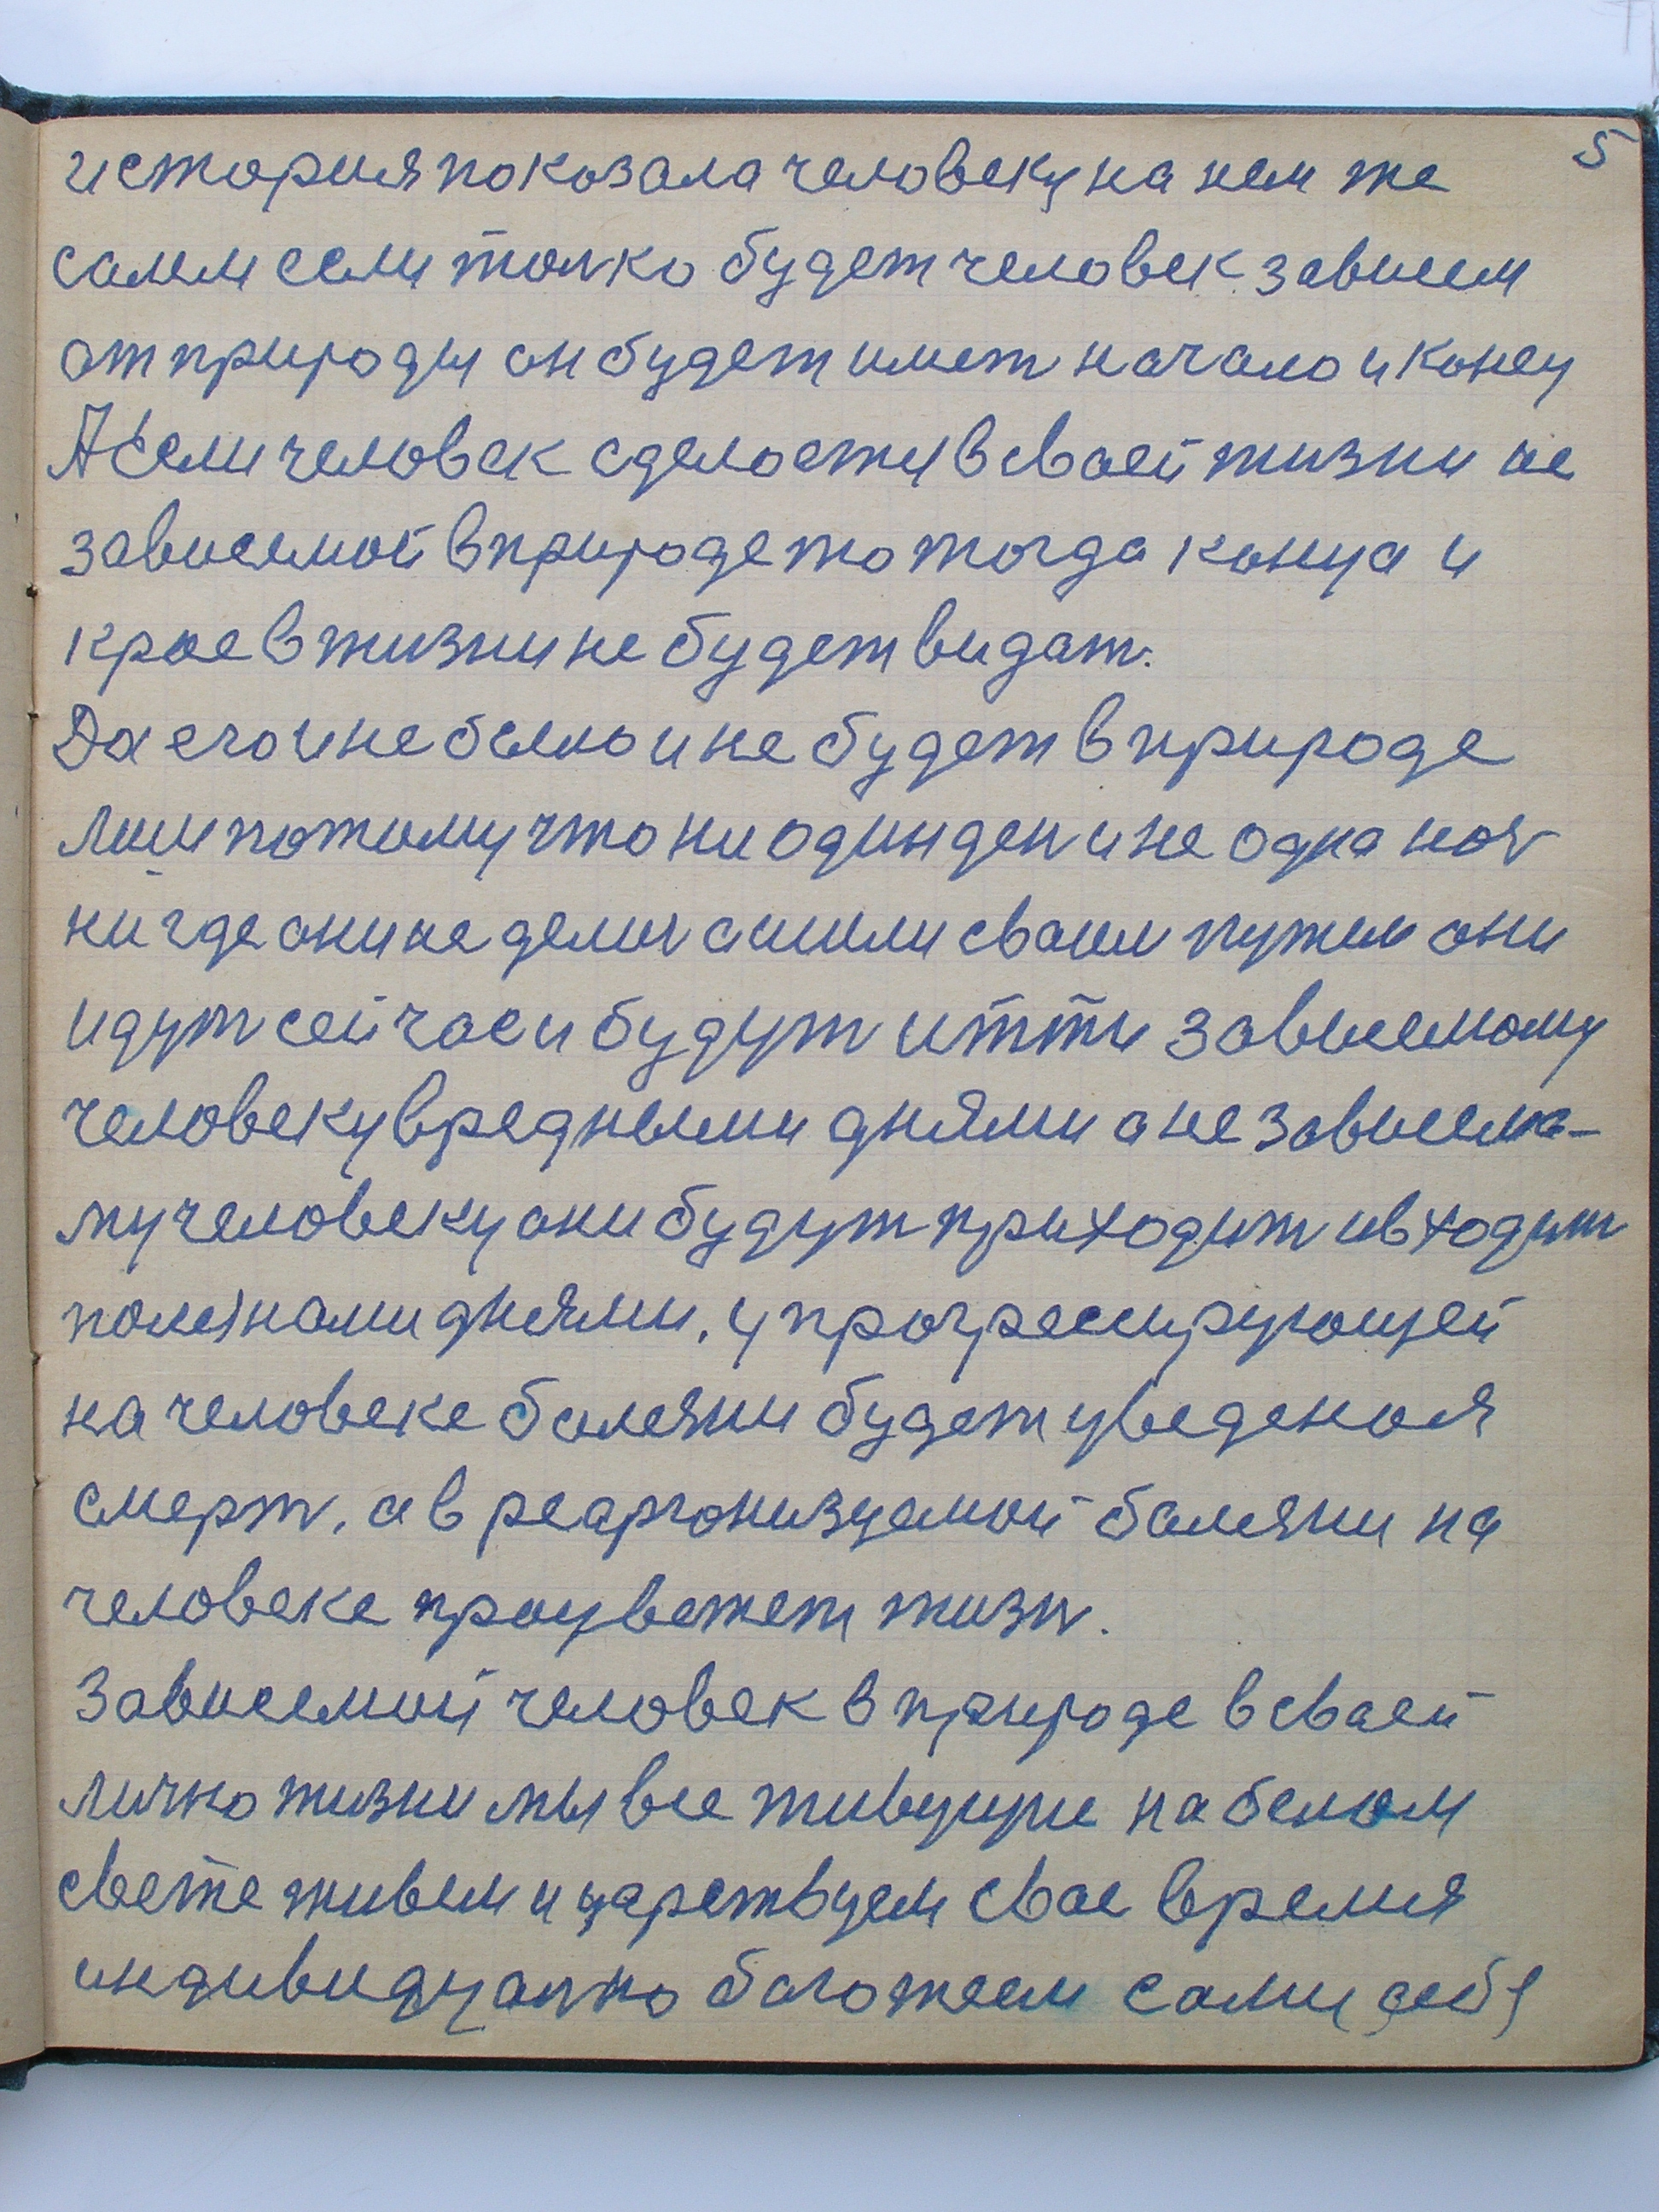 5
история показала человеку на нем же
самем если толко будет человек зависем
от природы он будет имет начало и конец
А если человек сделается в сваей жизни не
зависемой в природе то тогда конца и
крае в жизни не будет видат.
Да его и не было и не будет в природе
лиш потому что ни один ден и не одна ноч
нигде они не делис а шли сваим путем они
идут сейчас и будут итти зависемому
человеку вредными днями а не зависема-
му человеку они будут приходит и входит
полезнами днями. у прогрессирующей
на человеке болезни будет уведеная
смерт. а в реаргонизуемой болезни на
человеке процветет жизн.
Зависемой человек в природе в сваей
лично жизни мы все живущие на белом
свете живем и царствуем свае время
индивидуално богатеем сами себя